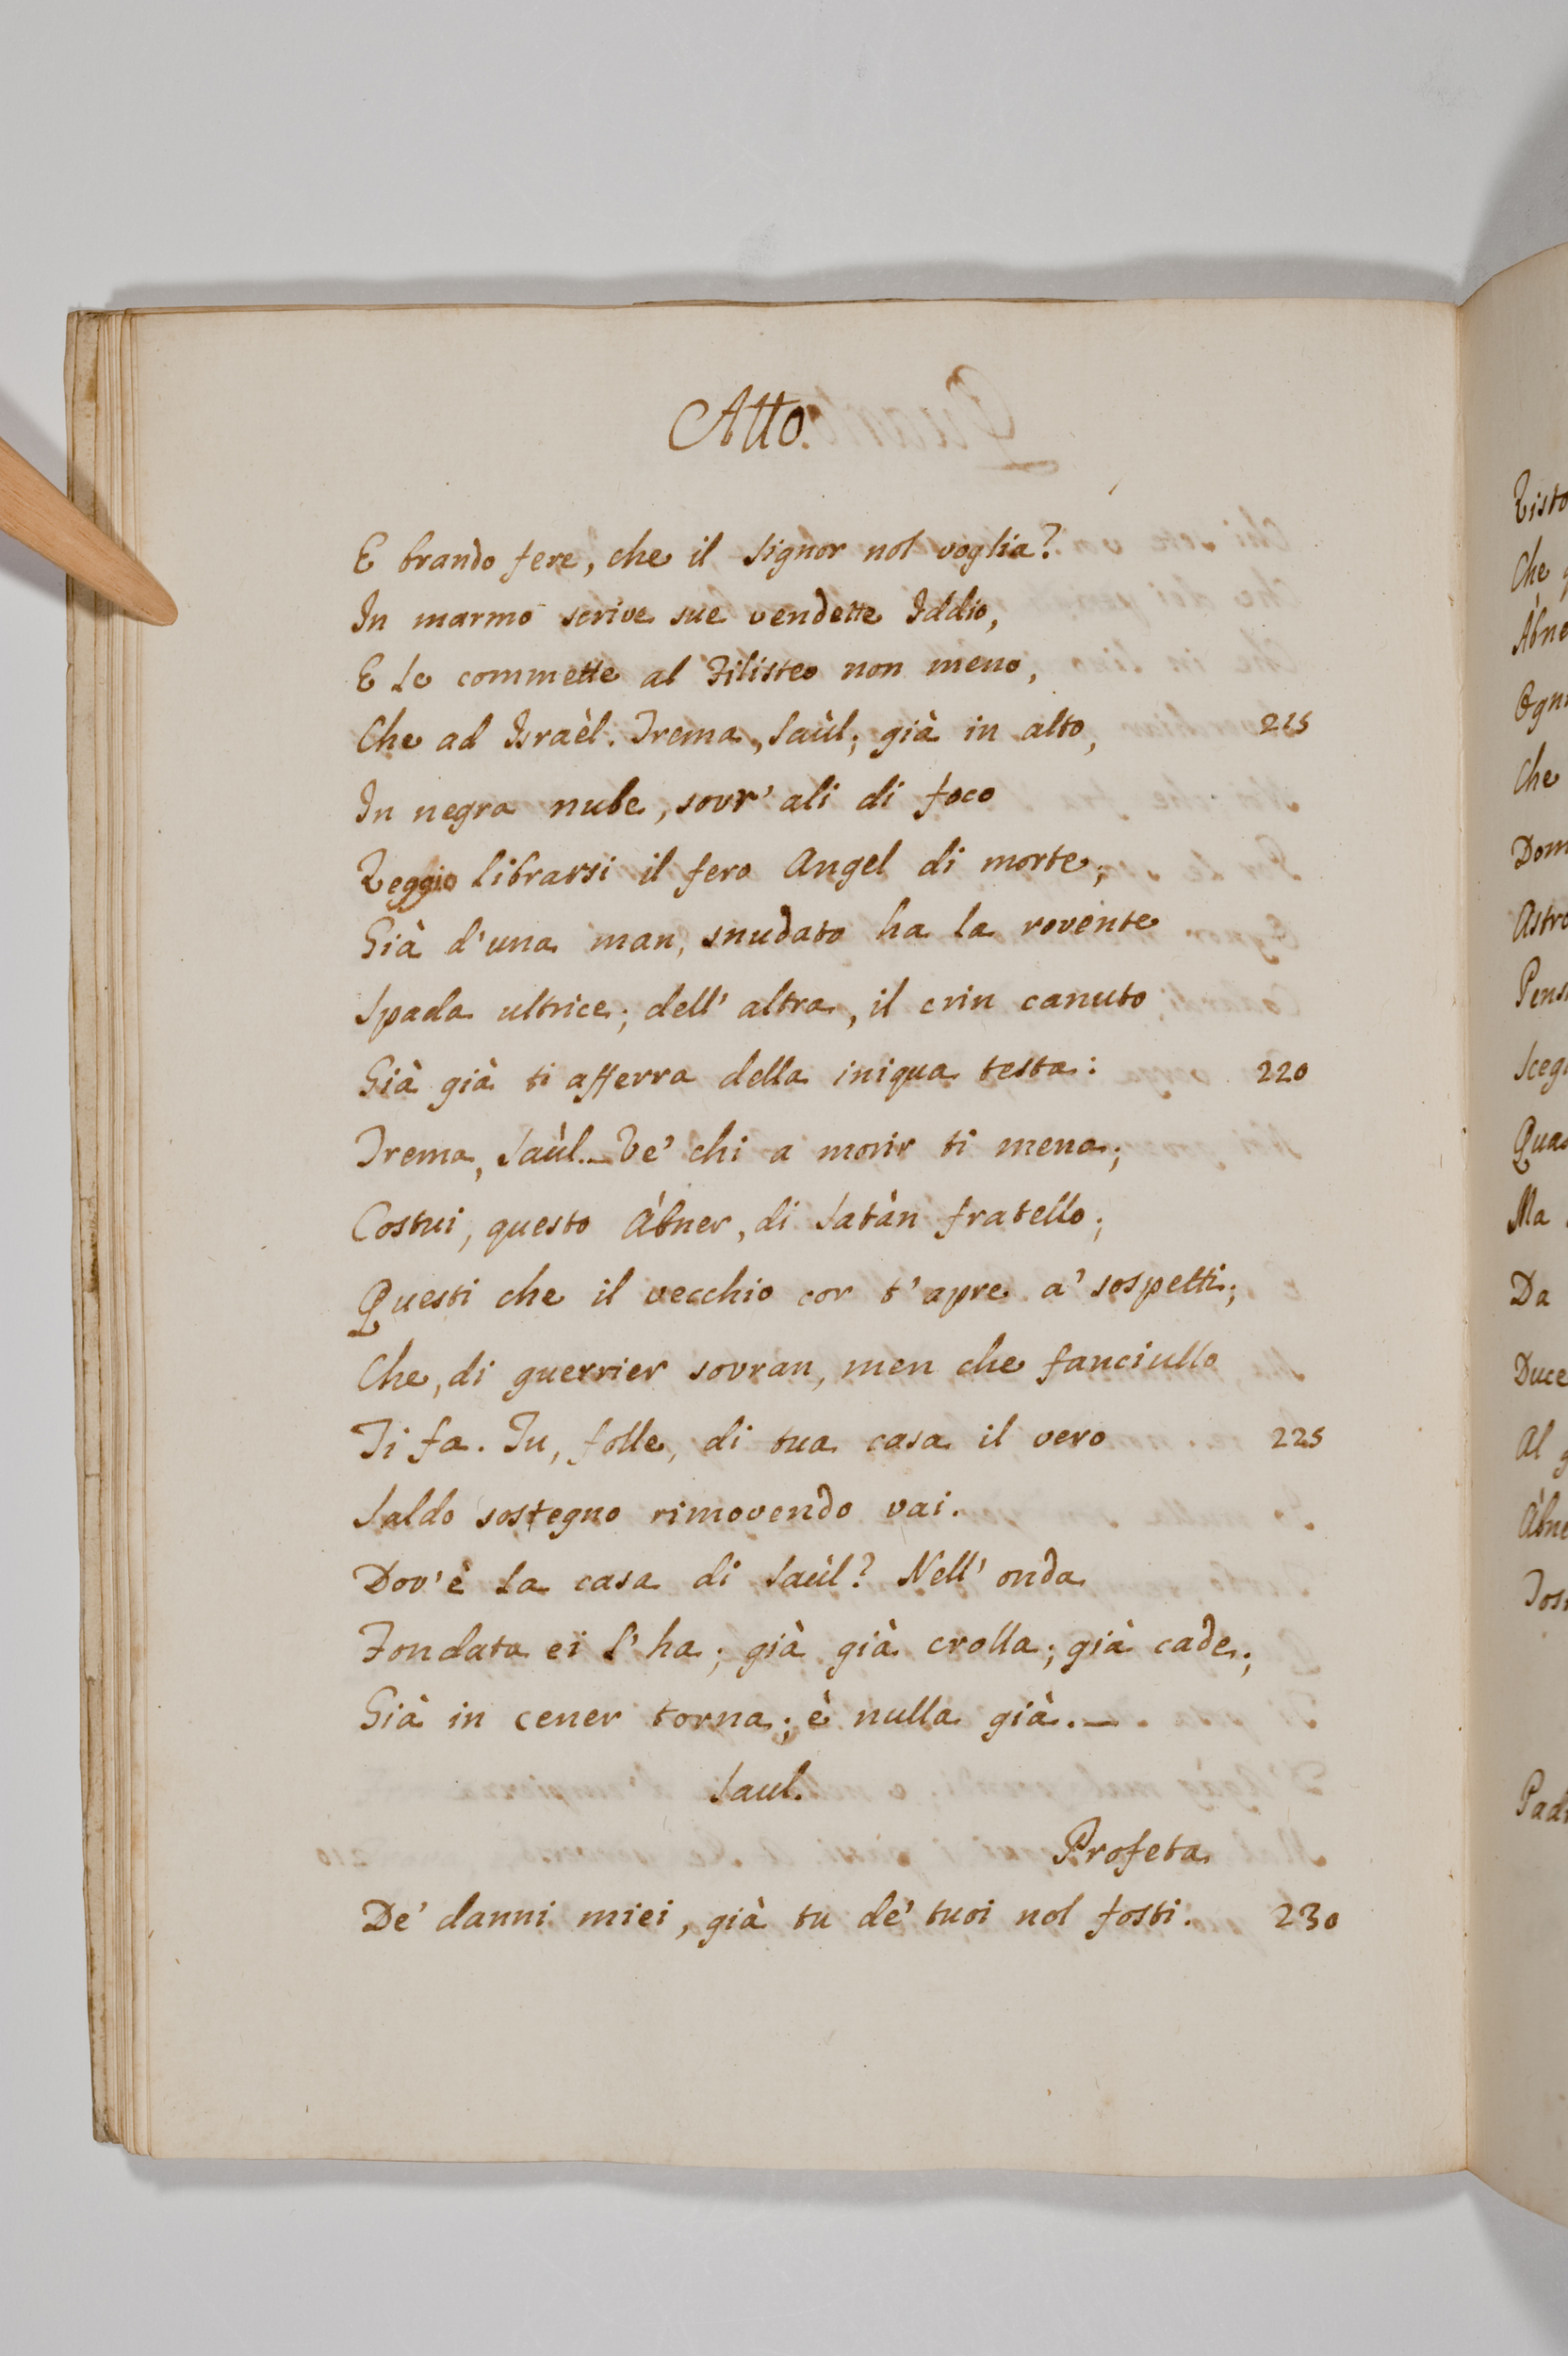 Atto.
E brando fere, che il Signor nol voglia?
In marmo scrive sue vendette Iddio,
E le commette al Filisteo non meno,
Che ad Israèl. Trema, Saùl; già in alto, 215
In negra nube, sovr' ali di foco
Veggio librarsi il fero Angel di morte;
Già d'una man, snudato ha la rovente
Spada ultrice; dell' altra, il crin canuto
Già già ti afferra della iniqua testa: 220
Trema, Saùl._ Ve' chi a morir ti mena;
Costui, questo Àbner, di Satàn fratello;
Questi che il vecchio cor t'apre a' sospetti;
Che, di guerrier sovran, men che fanciullo
Ti fa. Tu, folle, di tua casa il vero 225
Saldo sostegno rimovendo vai.
Dov'è la casa di Saùl? Nell' onda
Fondata ei l'ha; già già crolla; già cade;
Già in cener torna; è nulla già._
Saul.
Profeta
De' danni miei, già tu de' tuoi nol fosti. 230
Che
Che
Dom
Ma
Da
Duce
Al